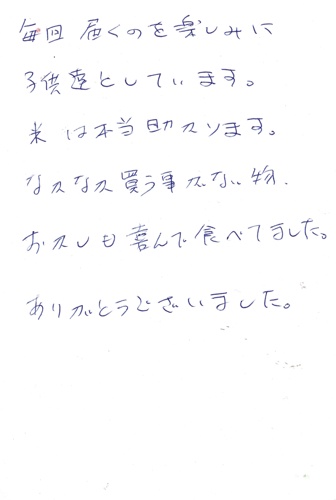 毎回 届くのを楽しみに
子供達としています。
米は本当助かります。
なかなか買う事がない物、
おかしも喜んで食べてました。
ありがとうございました。